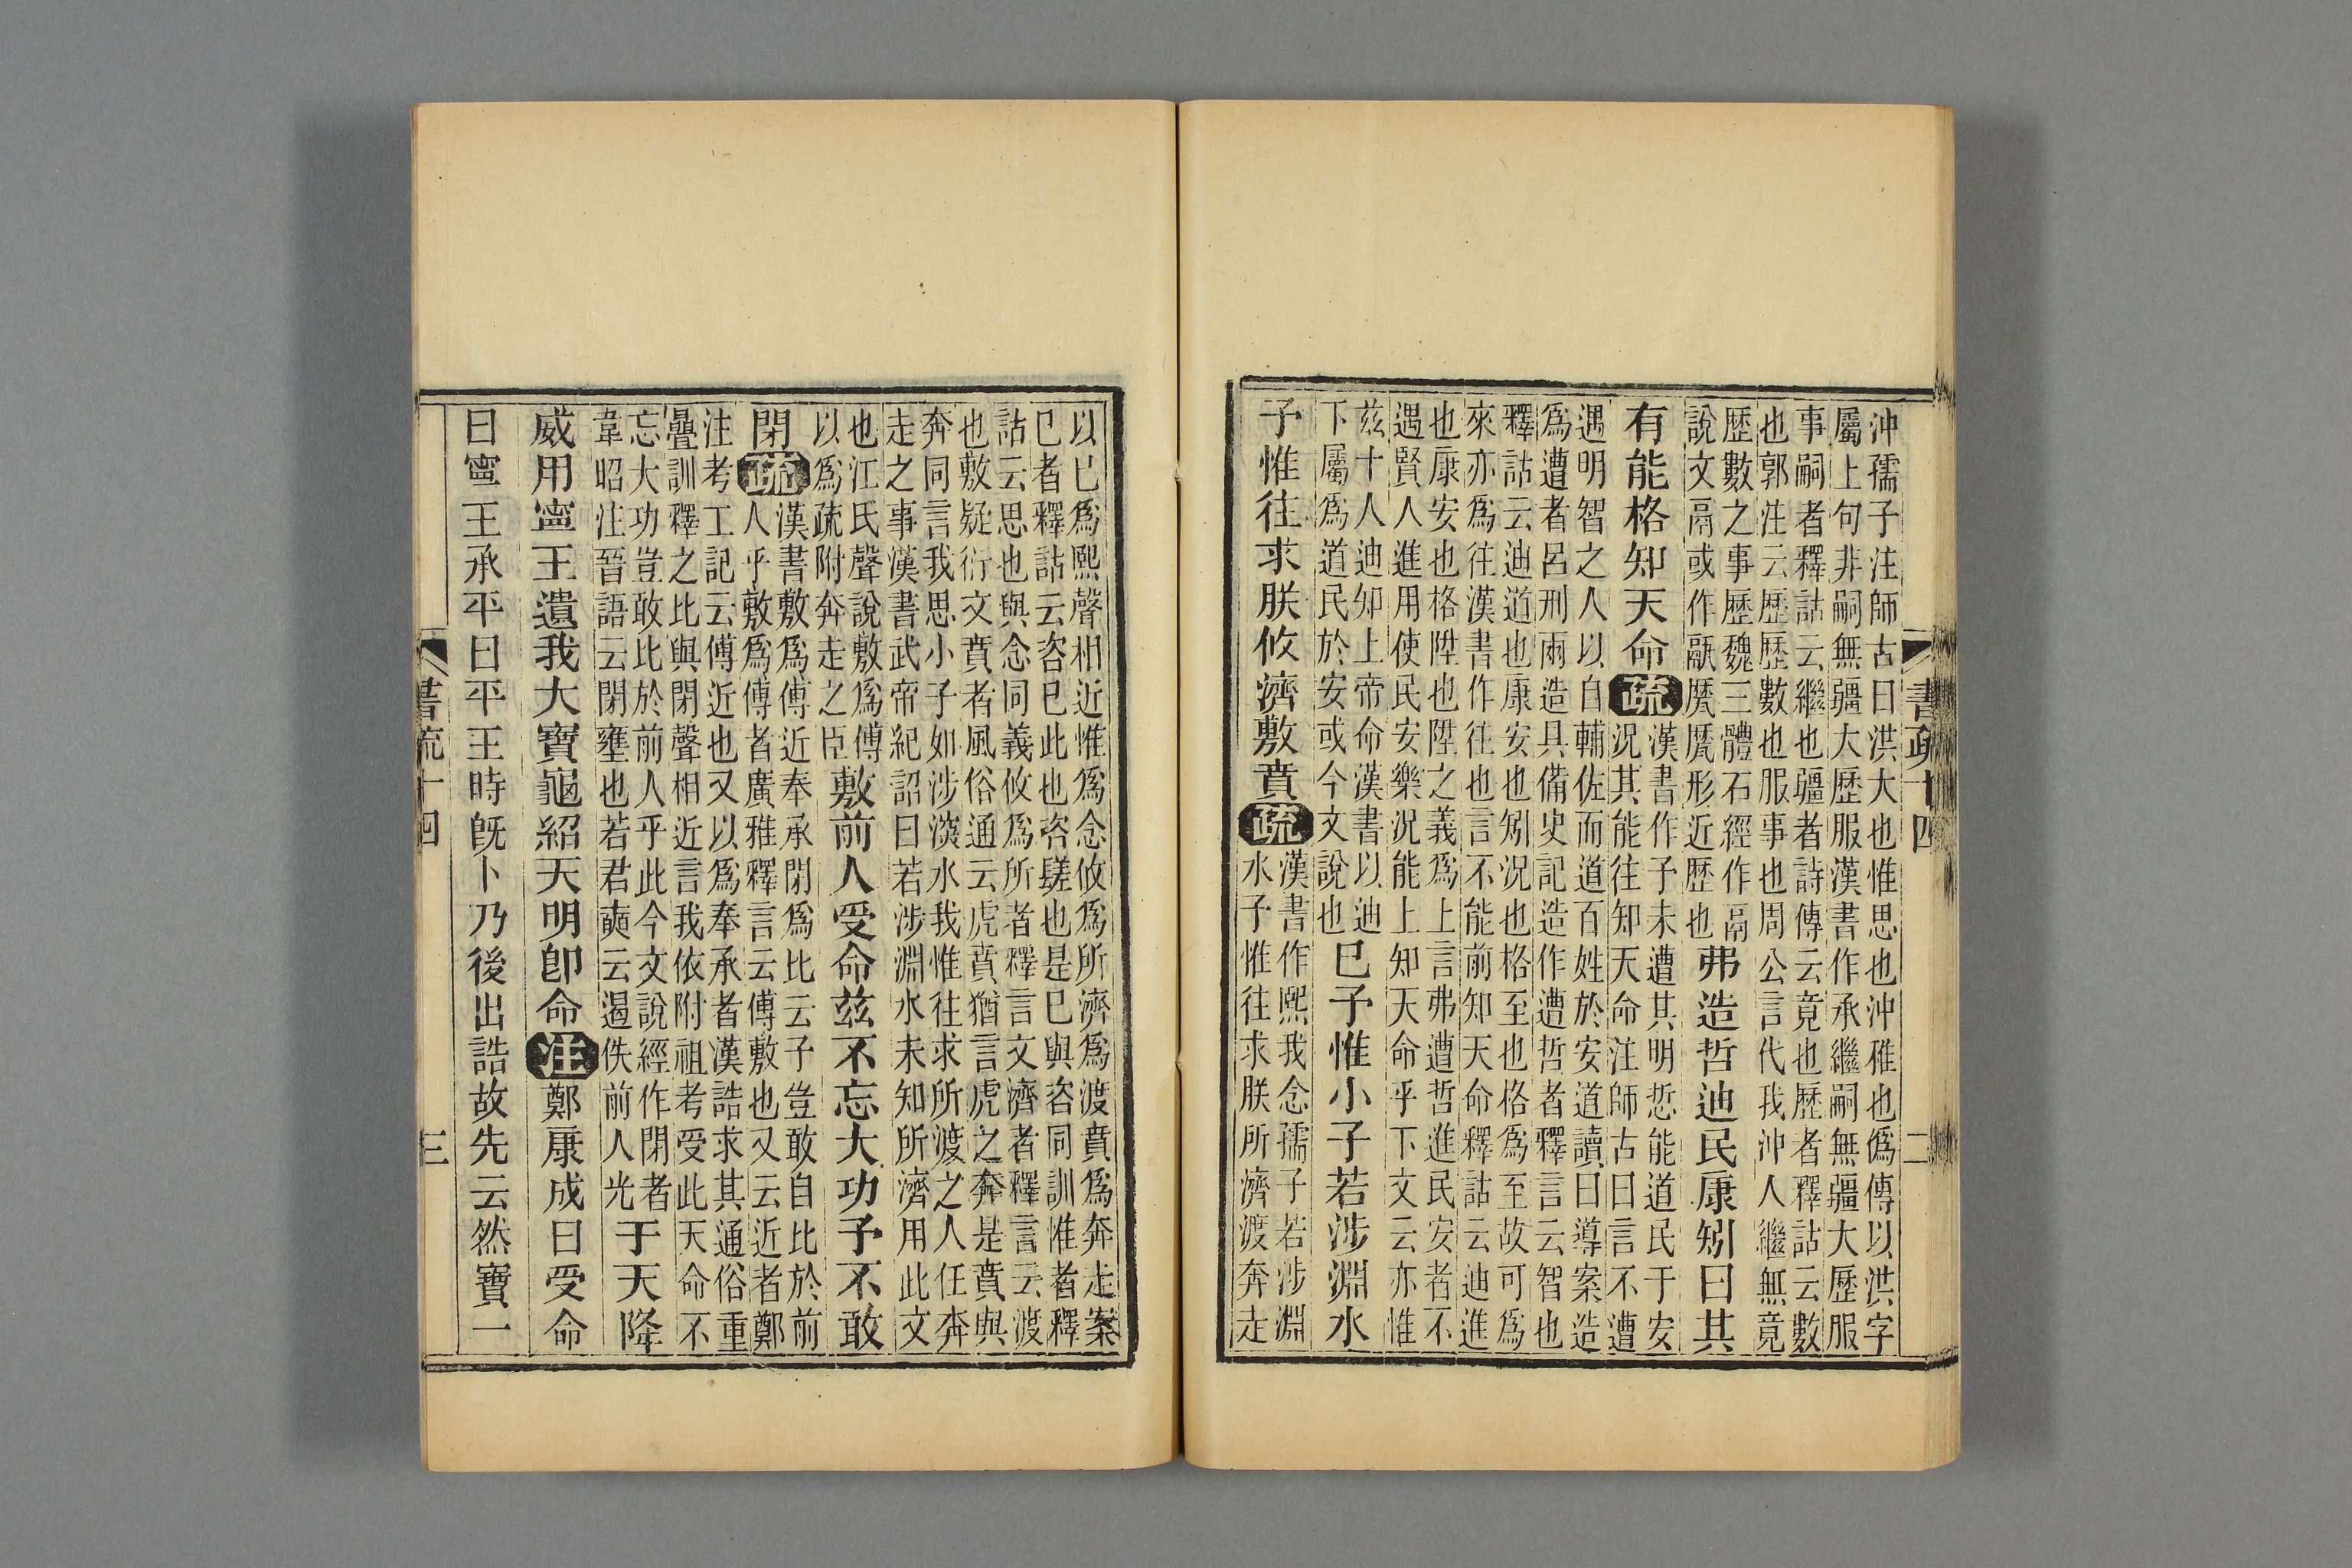 書疏十四 二
沖孺子注師古曰洪大也惟思也沖稚也僞傳以洪字
屬上句非嗣無疆大歷服漢書作承繼嗣無疆大歷服
事嗣者釋詁云繼也疆者詩傳云竟也歷者釋詁云數
也郭注云歷歷數也服事也周公言代我沖人繼無竟
歷數之事歷魏三體石經作鬲
說文鬲或作䰛厤厤形近歷也
弗造哲迪民康矧曰其
有能格知天命疏
漢書作予未遭其明悊能道民于安
況其能往知天命注師古曰言不遭
遇明智之人以自輔佐而道百姓於安道讀曰導案造
爲遭者呂刑兩造具備史記造作遭哲者釋言云智也
釋詁云迪道也康安也矧況也格至也格爲至故可爲
來亦爲往漢書作往也言不能前知天命釋詁云迪進
也康安也格陞也陞之義爲上言弗遭哲進民安者不
遇賢人進用使民安樂況能上知天命乎下文云亦惟
茲十人迪知上帝命漢書以迪
下屬爲道民於安或今文說也
已予惟小子若涉淵水
予惟往求朕攸濟敷賁疏
漢書作熙我念孺子若涉淵
水予惟往求朕所濟渡奔走
以已爲熙聲相近惟爲念攸爲所濟爲渡賁爲奔走案
已者釋詁云咨已此也咨䁟也是已與咨同訓惟者釋
詁云思也與念同義攸爲所者釋言文濟者釋言云渡
也敷疑衍文賁者風俗通云虎賁猶言虎之奔是賁與
奔同言我思小子如涉淡水我惟往求所渡之人任奔
走之事漢書武帝紀詔曰若涉淵水未知所濟用此文
也江氏聲說敷爲傅
以爲疏附奔走之臣
敷前人受命茲不忘大功予不敢
閉疏
漢書敷爲傅近奉承閉爲比云予豈敢自比於前
人乎敷爲傅者廣雅釋言云傅敷也又云近者鄭
注考工記云傅近也又以爲奉承者漢誥求其通俗重
疊訓釋之比與閉聲相近言我依附祖考受此天命不
忘大功豈敢比於前人乎此今文說經作閉者
韋昭注晉語云閉壅也若君奭云遏佚前人光
于天降
威用寧王遺我大寶龜紹天明卽命注鄭康成曰受命
曰寧王承平曰平王時旣卜乃後出誥故先云然寶一
書疏十四 三